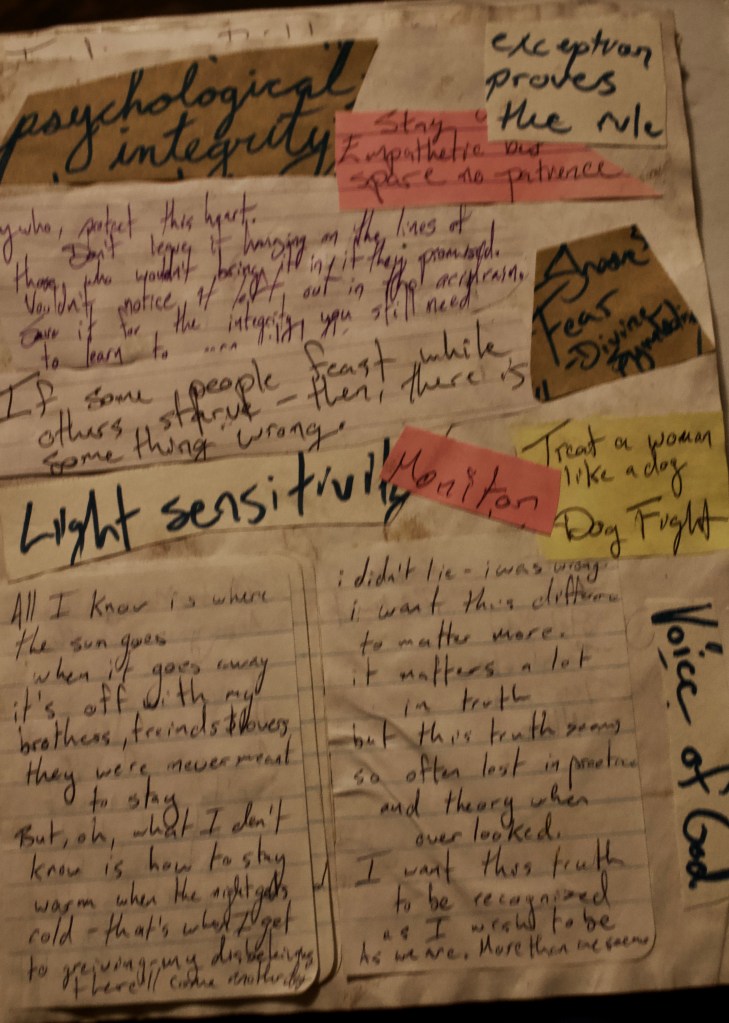 psychological
integrity
exception
proves
the rule
Stay
Empathetic but
spare no
protect this heart.
Don't leave it hanging on the lines of
those who wouldn't bring it in if they promised.
Wouldn't notice if left out in the
Save it for the integrity you still need
to learn to
If some people feast while
others starve - then, there is
something wrong.
Fear
Light sensitivity
Monitor
Treat a woman
like a dog
Dog Fight
All I know is where
the sun goes
when it goes away
it's off with my
brothers, freinds & lovers
they were never meant
to stay
But, oh, what I don't
know is how to stay
warm when the night gets
cold - that's when I get
to greiving my
there'll come another
i didn't lie - i was wrong
i want this difference
to matter more.
it matters a lot
in truth
but this truth seems
so often lost in practice
and theory when
over looked.
I want this truth
to be recognized
as I wish to be
As we are. More than we seem
Voice of God